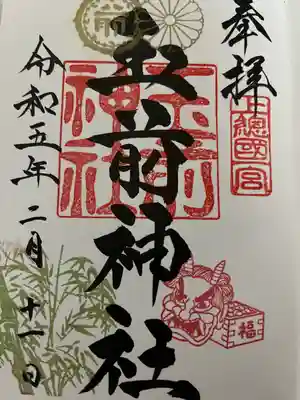 奉拝
玉前神社
玉前神社
令和五年二月十一日
福